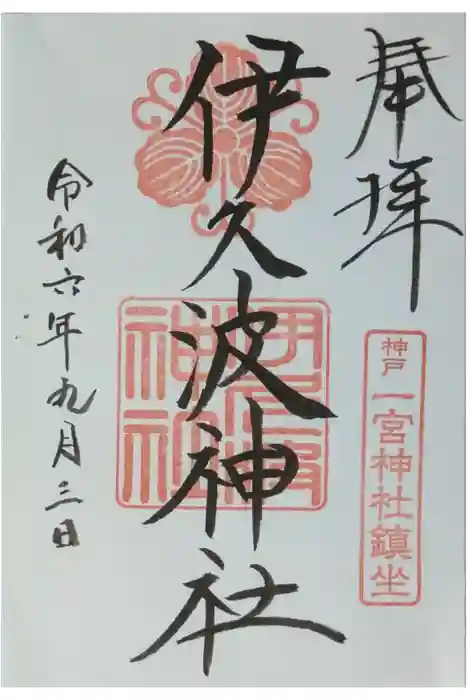 奉拝
神戸 一宮神社鎮坐
伊久波神社
伊久波神社
令和六年九月三日